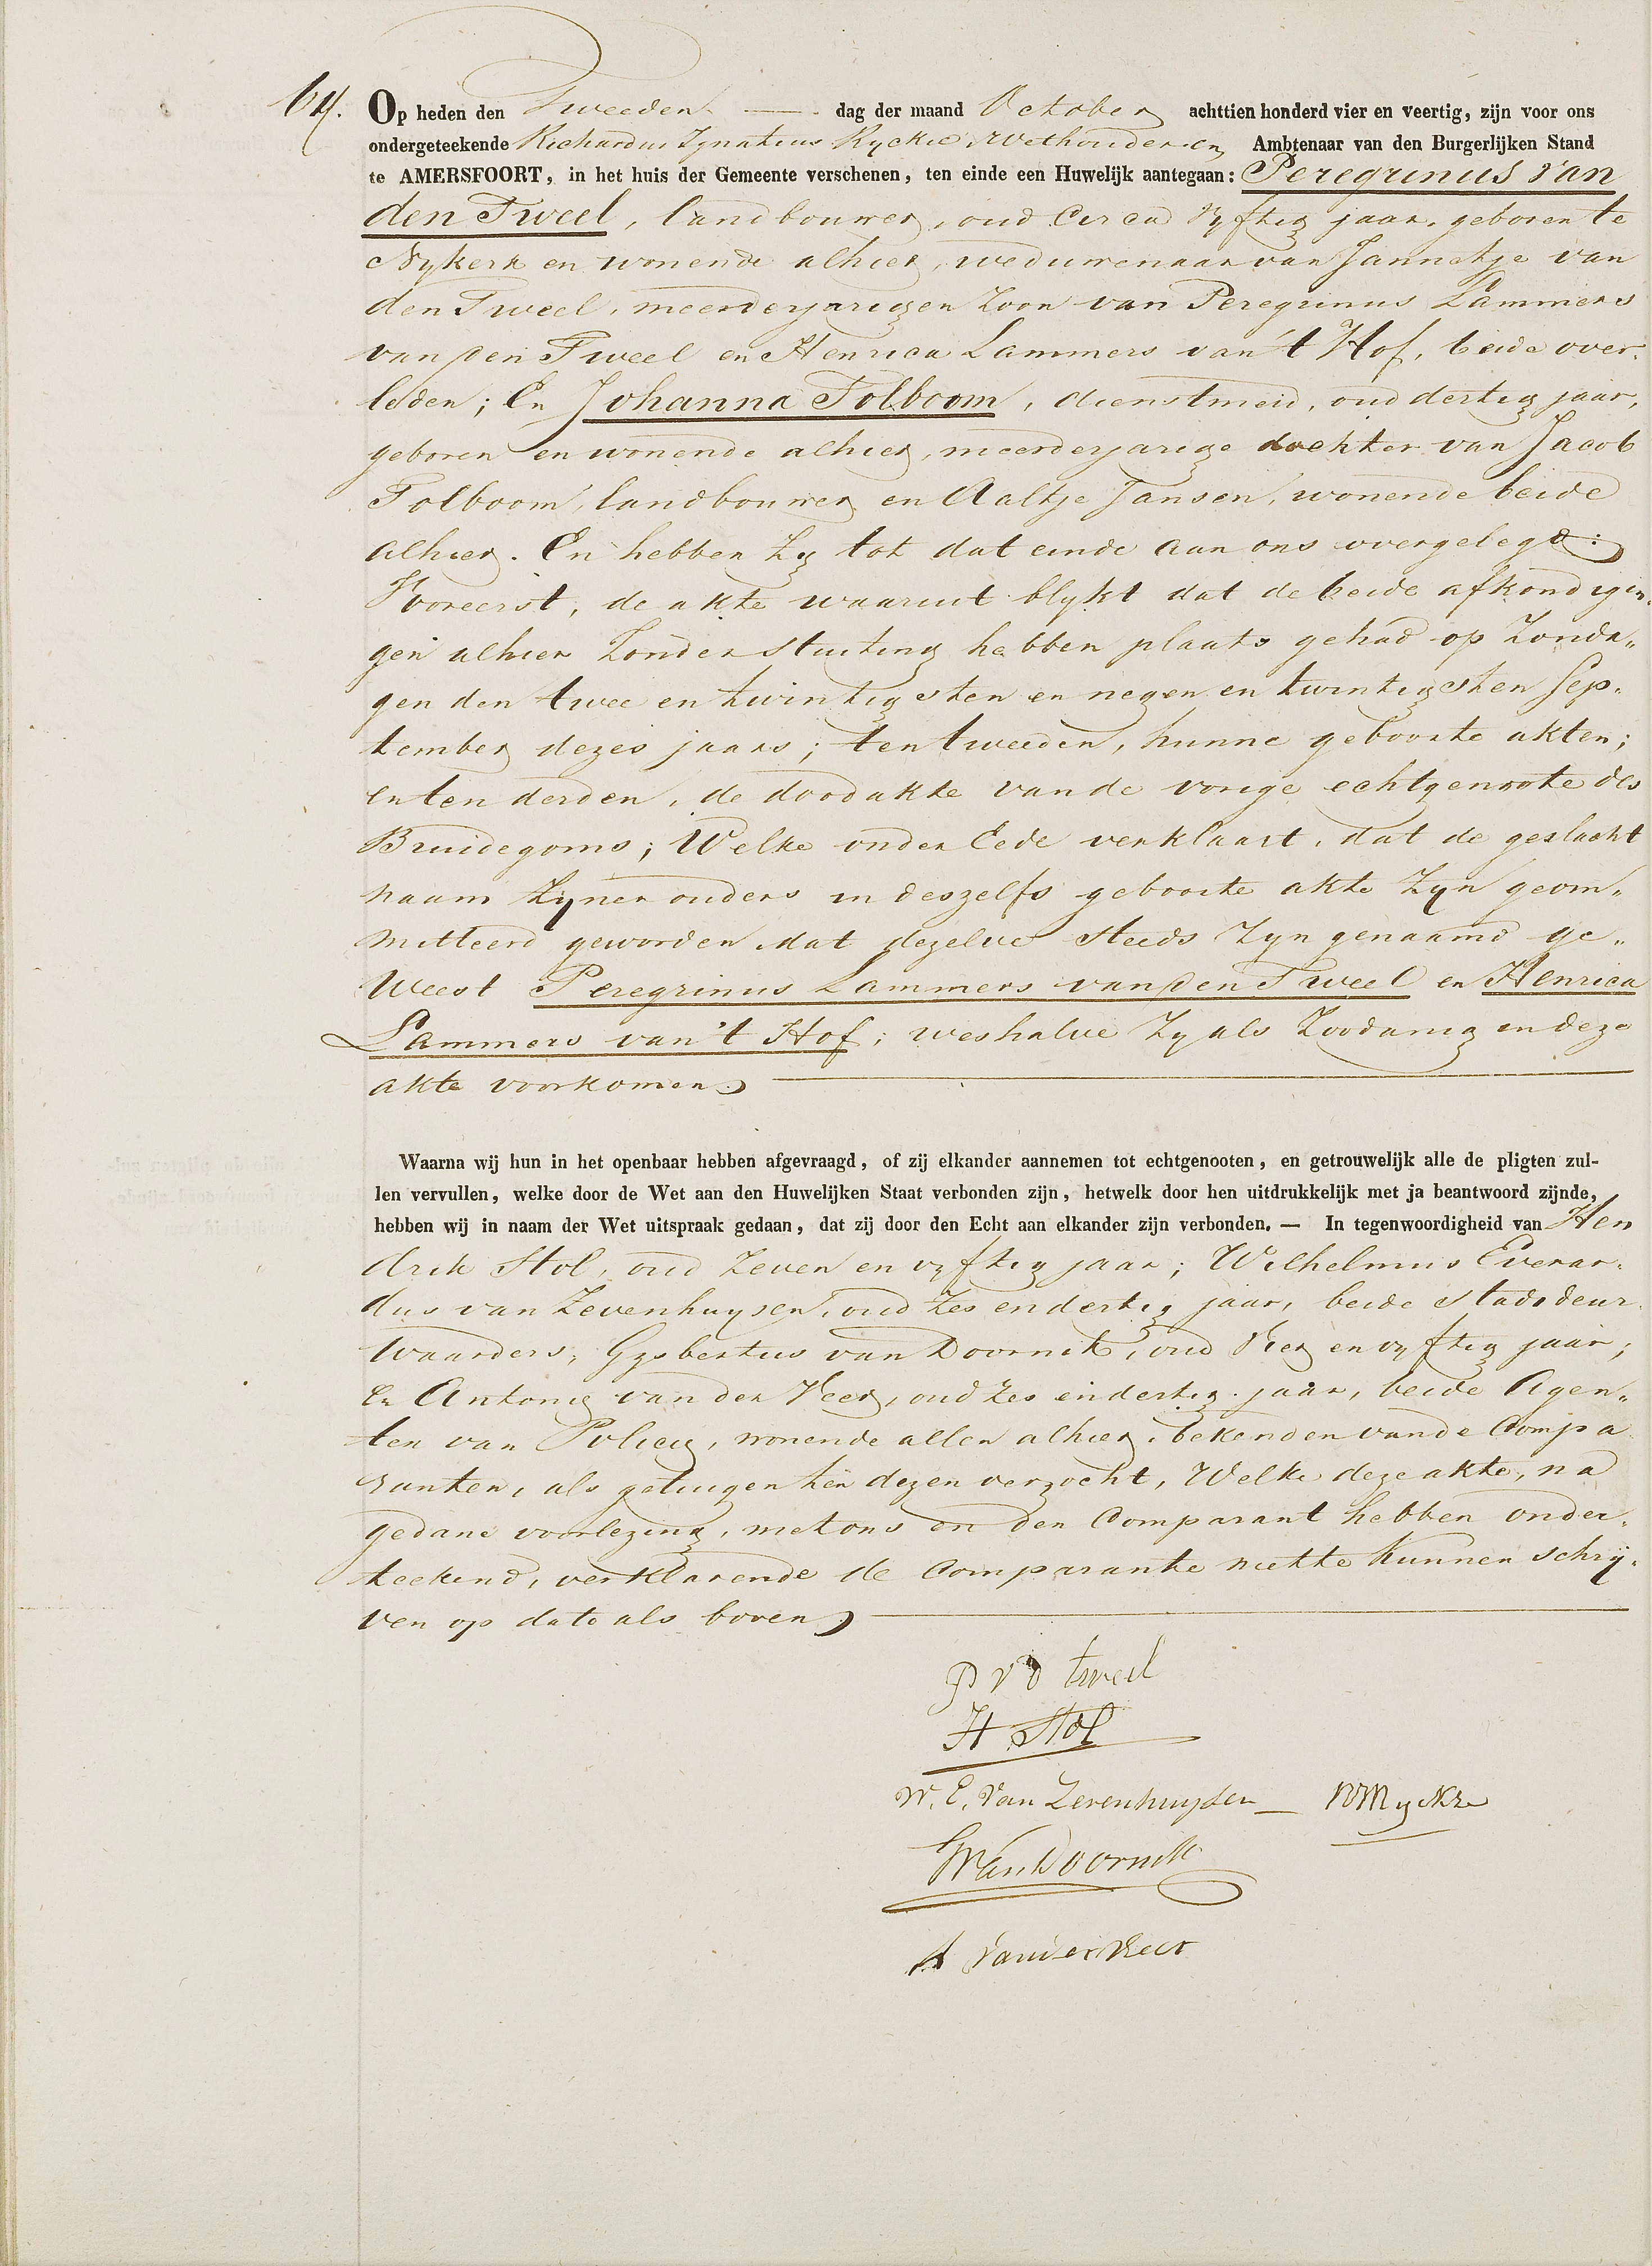 64. Op heden den Tweeden dag der maand October achttien honderd vier en veertig, zijn voor ons
ondergeteekende Richardus Ignatius Ryckie, Wethouder en Ambtenaar van den Burgerlijken Stand
te AMERSFOORT, in het huis der Gemeente verschenen, ten einde een Huwelijk aantegaan: Peregrinus van
den Tweel, landbouwer, oud circa Vyftig jaar, geboren te
Nykerk en wonende alhier, weduwenaar van Jannetje van
den Tweel, meerderjarigen Zoon van Peregrinus Lammers
van den Tweel en Henrica Lammers van 't Hof, beide over-
leden; En Johanna Tolboom, dienstmeid, oud dertig jaar,
geboren en wonende alhier, meerderjarige dochter van Jacob
Tolboom, landbouwer en Aaltje Jansen, wonende beide
alhier. En hebben Zy tot dat einde aan ons overgelegd:
Vooreerst, de akte waaruit blykt dat de beide afkondigin-
gen alhier Zonder stuiting hebben plaats gehad op Zonda„
gen den twee en twintigsten en negen en twintigsten Sep-
tember dezes jaars; ten tweeden, hunne geboorte akten;
en ten derden, de doodakte van de vorige echtgenoote des
Bruidegoms; Welke onder Eede verklaart, dat de geslacht
naam Zyner ouders in deszelfs geboorte akte Zyn geom„
mitteerd geworden, dat dezelve steeds Zyn genaamd ge„
Weest Peregrinus Lammers van den Tweel en Henrica
Lammers van 't Hof; weshalve Zy als Zoodanig in deze
akte voorkomen.
Waarna wij hun in het openbaar hebben afgevraagd, of zij elkander aannemen tot echtgenooten, en getrouwelijk alle de pligten zul-
len vervullen, welke door de Wet aan den Huwelijken Staat verbonden zijn, hetwelk door hen uitdrukkelijk met ja beantwoord zijnde,
hebben wij in naam der Wet uitspraak gedaan, dat zij door den Echt aan elkander zijn verbonden. — In tegenwoordigheid van Hen
drik Stol, oud Zeven en vyftig jaar; Wilhelmus Everar-
dus van Zevenhuysen, oud Zes en dertig jaar, beide stads deur
waarders; Gysbertus van Doornik, oud Vier en vyftig jaar;
En Antonie van der Veer, oud Zes en dertig jaar, beide Agen„
ten van Policie, wonende allen alhier, bekenden van de Compa
ranten, als getuigen ten dezen verzocht, Welke deze akte, na
gedane voorlezing, met ons en den Comparant hebben onder-
teekend, verklarende de Comparante niet te kunnen schry-
ven op dato als boven.
P v d tweel
H Stol
W. E. Van Zevenhuysen
GVan Doornik
A Van der Veer